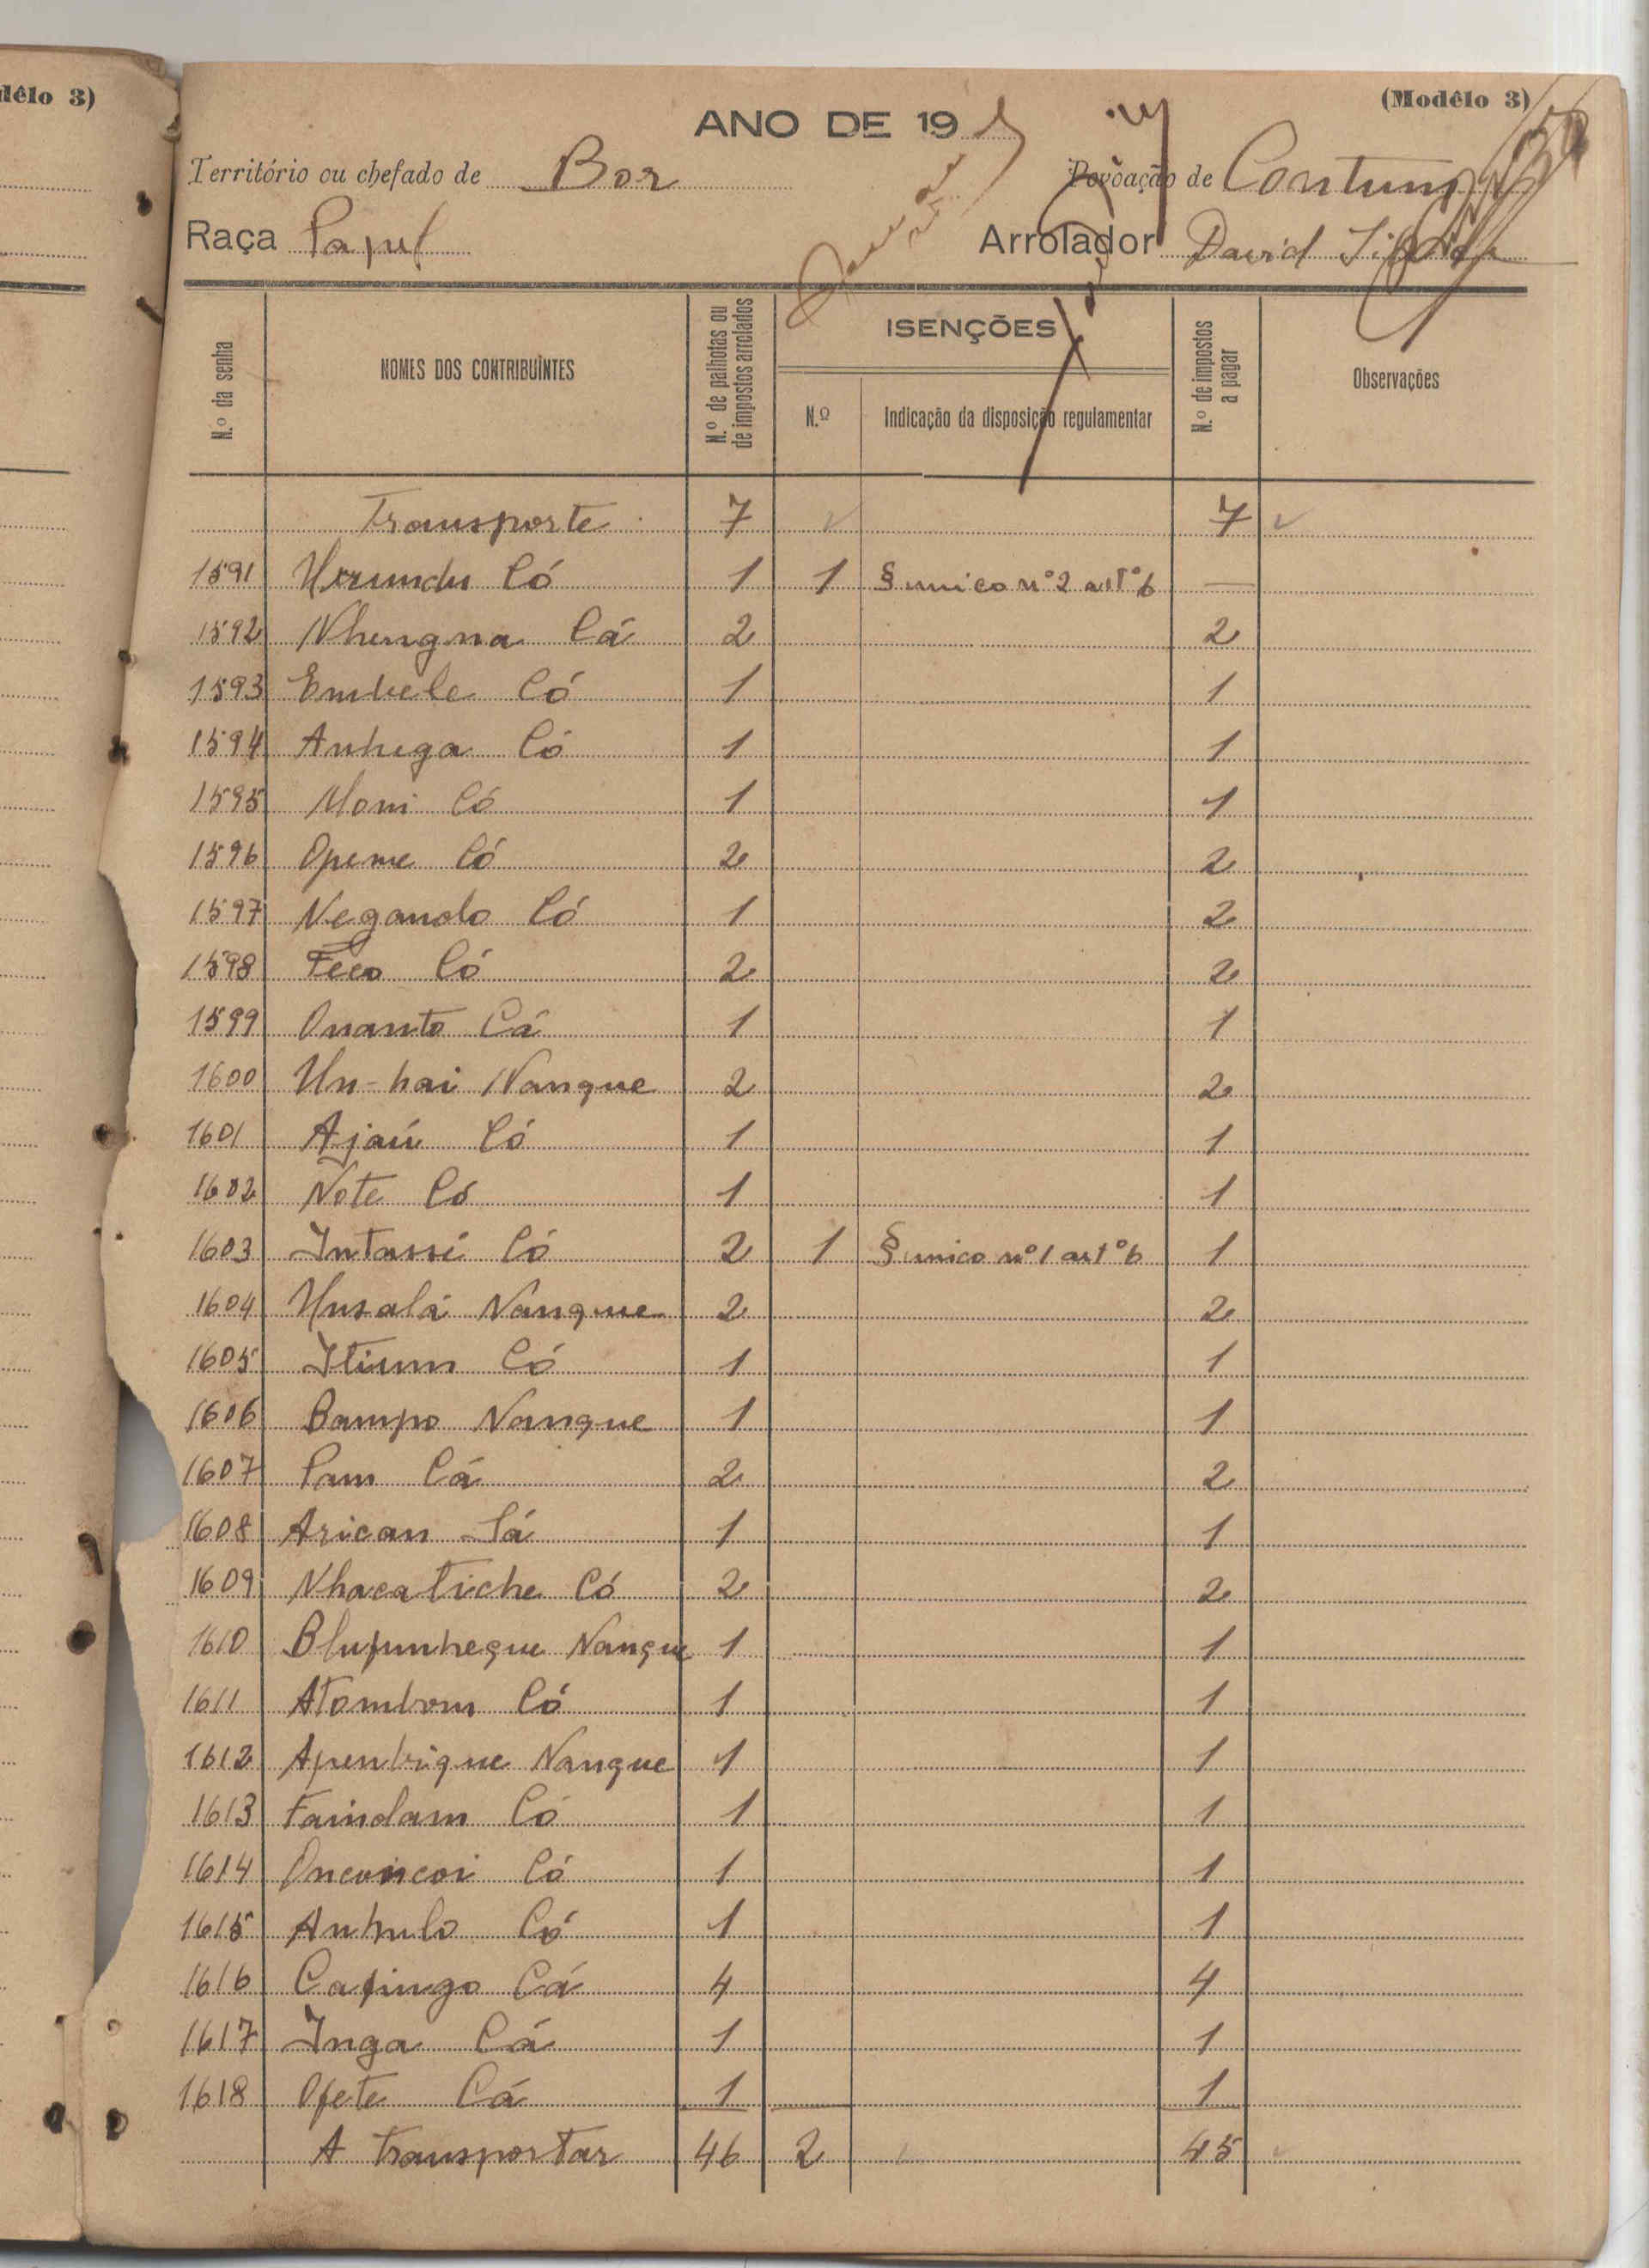 dêlo 3)
(Modêlo 3)
ANO DE 19
Território ou chefado de Bor
Povoação de Contum
Raça Papel
Arrolador David
N.º da senha
NOMES DOS CONTRIBUÏNTES
N.º de palhotas ou de impostos arrolados
ISENÇÕES
N.º
Indicação da disposição regulamentar
N.º de impostos a pagar
Observações
Transporte 7 7
1591 Urundu Có 1 1 § unico nº 2 artº 6 —
1592 Nhungna Cá 2 2
1593 Embele Có 1 1
1594 Anhega Có 1 1
1595 Moni Có 1 1
1596 Opeme Có 2 2
1597 Negando Có 1 2
1598 Feco Có 2 2
1599 Onanto Cá 1 1
1600 Un-hai Nanque 2 2
1601 Ajaú Có 1 1
1602 Note Có 1 1
1603 Intassé Có 2 1 § unico nº 1 artº 6 1
1604 Unsalá Nanque 2 2
1605 Itium Có 1 1
1606 Bampo Nanque 1 1
1607 Pam Cá 2 2
1608 Arican Sá 1 1
1609 Nhacatiche Có 2 2
1610 Blufunhegue Nanque 1 1
1611 Atombom Có 1 1
1612 Apenbrique Nanque 1 1
1613 Faindam Có 1 1
1614 Oncoincoi Có 1 1
1615 Anhulo Có 1 1
1616 Cafingo Cá 4 4
1617 Inga Cá 1 1
1618 Ofete Cá 1 1
A transportar 46 2 45